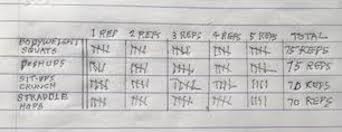 1 REP 2 REPS 3 REPS 4 REPS 5 REPS TOTAL
BODYWEIGHT
SQUATS 75 REPS
PUSHUPS 75 REPS
SIT-UPS
CRUNCH 70 REPS
STRADDLE
HOPS 70 REPS